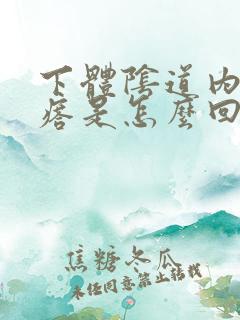 下體陰道內
痞是怎麼回
焦糖冬瓜
未经同意禁止转载